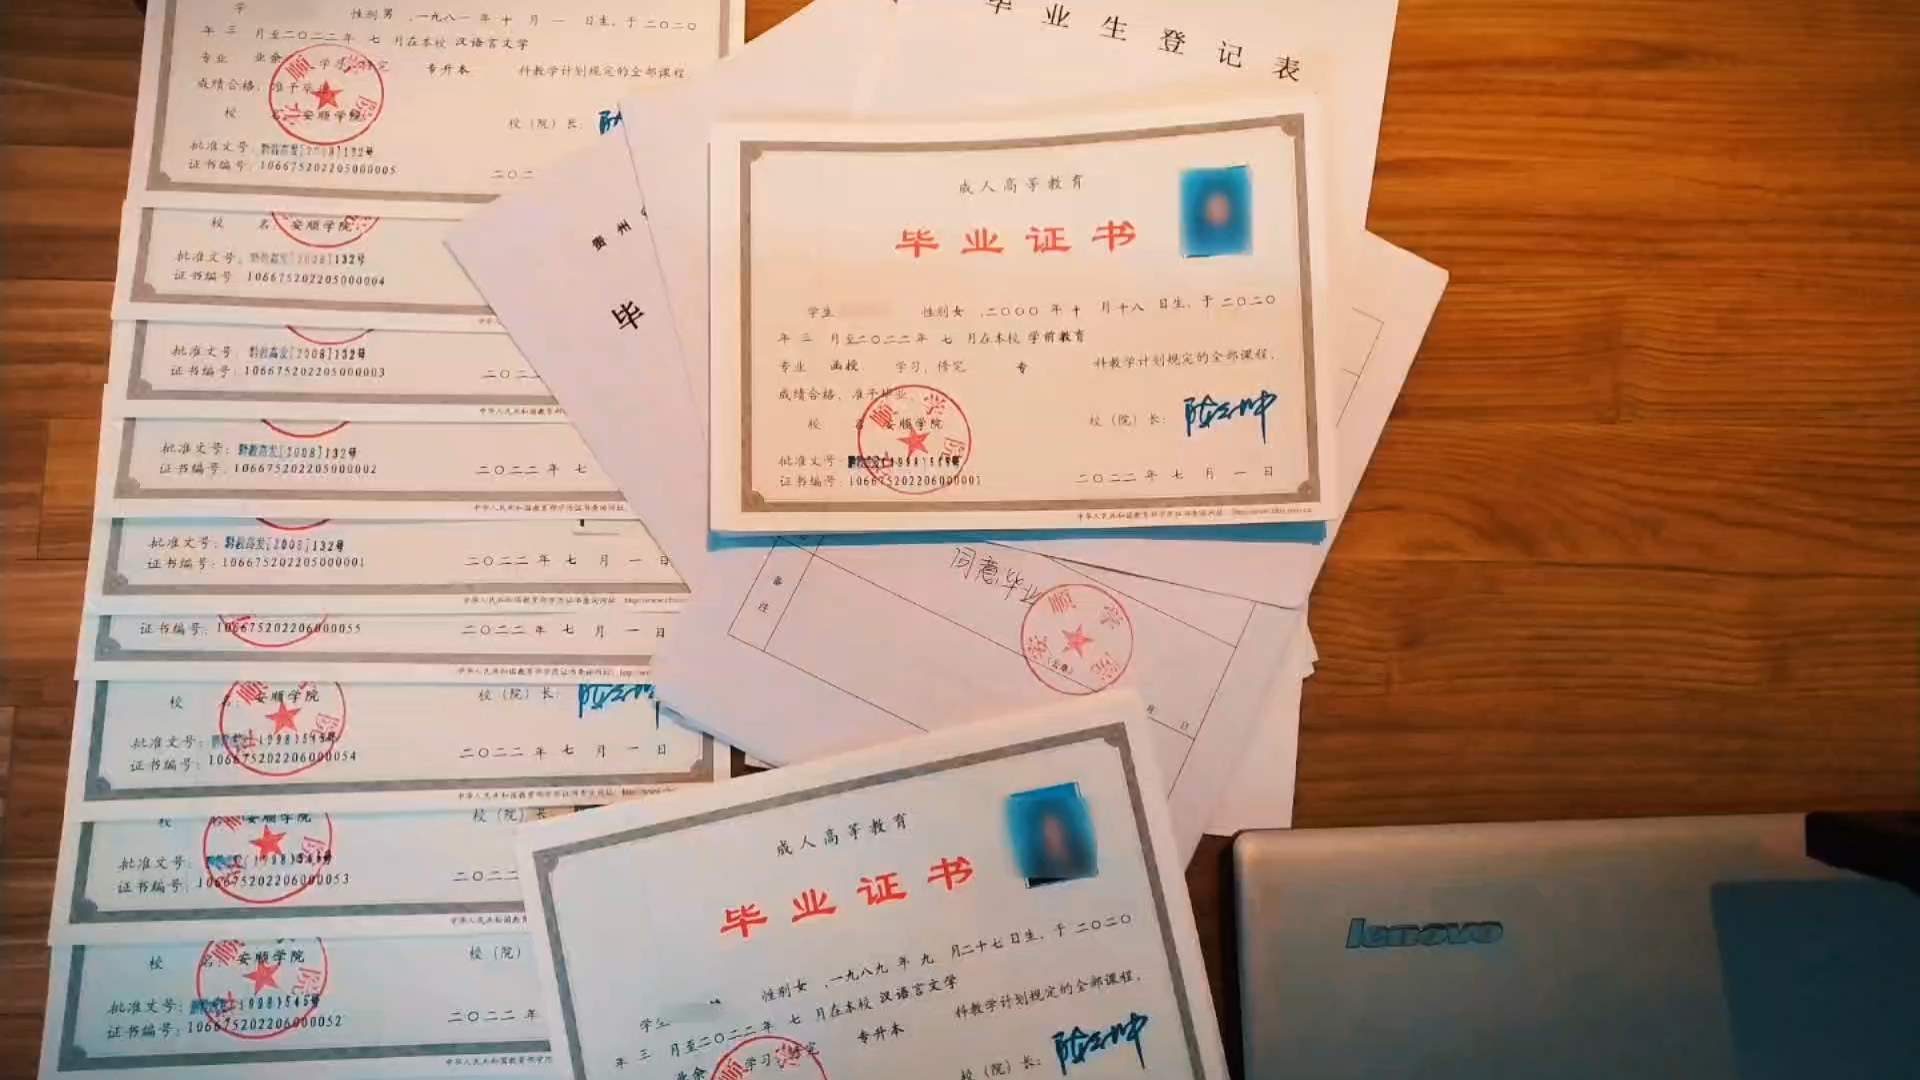 学
性别男 ,一九八一年 十 月 一 日生,于二〇二〇
年 三 月至二〇二二年 七 月在本校 汉语言文学
专业 业余 学习,修完 专升本 科教学计划规定的全部课程,
成绩合格,准予毕业
校 名 安顺学院 校(院)长:
批准文号 黔教高发[2008]132号
证书编号:106675202205000005
二〇二
校 名: 安顺学院
批准文号: 黔教高发[2008]132号
证书编号 106675202205000004
批准文号: 黔教高发[2008]132号
证书编号:106675202205000003
二〇二
批准文号: 黔教高发[2008]132号
证书编号:106675202205000002
二〇二二 年 七
批准文号: 黔教高发[2008]132号
证书编号:106675202205000001
二〇二二 年 七 月 一 日
证书编号:106675202206000055
二〇二二 年 七 月 一 日
校 名: 安顺学院 校(院)长:
批准文号:
证书编号:106675202206000054
二〇二二 年 七 月 一 日
校 名 安顺学院 校(院)长
批准文号:
证书编号:106675202206000053
二〇二
校 名: 安顺学院 校(院)
批准文号:
证书编号:106675202206000052
二〇二二 年
毕业生登记表
贵州
毕
成人高等教育
毕业证书
学生 性别女 ,二〇〇〇 年 十 月十八 日生,于二〇二〇
年 三 月至二〇二二年 七 月在本校 学前教育
专业 函授 学习,修完 专 科教学计划规定的全部课程,
成绩合格,准予毕业。
校 名 安顺学院 校(院)长:
批准文号:
证书编号:106675202206000001
二〇二二 年 七 月 一 日
备注
同意毕业
安顺学院
(公章)
月 日
成人高等教育
毕业证书
学生 性别女 ,一九八九 年 九 月二十七日生,于二〇二〇
年 三 月至二〇二二年 七 月在本校 汉语言文学
业余 学习,修完 专升本 科教学计划规定的全部课程,
校(院)长:
lenovo